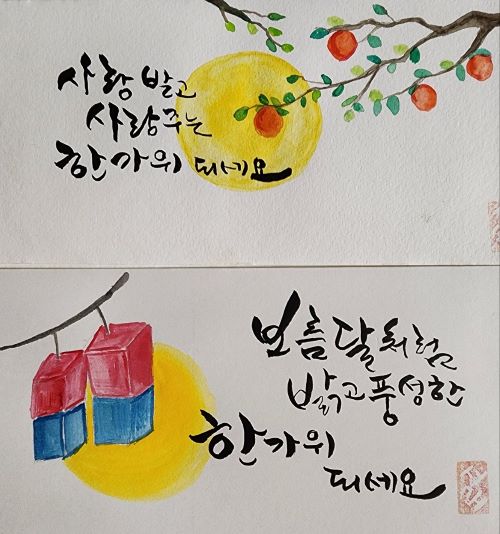 사랑 받고
사랑주는
한가위 되세요
보름달처럼
밝고 풍성한
한가위
되세요